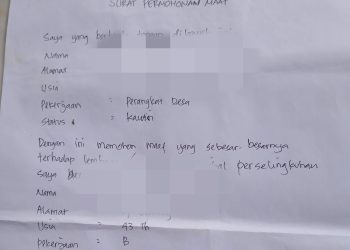 SURAT PERMOHONAN MAAF
Saya yang
Nama
Alamat
Usia
Pekerjaan : Perangkat Desa
Status : Kawin
Dengan ini memohon maaf yang sebesar besarnya
terhadap perselingkuhan
Saya
Nama
Alamat
Usia : 43 Th
Pekerjaan : B